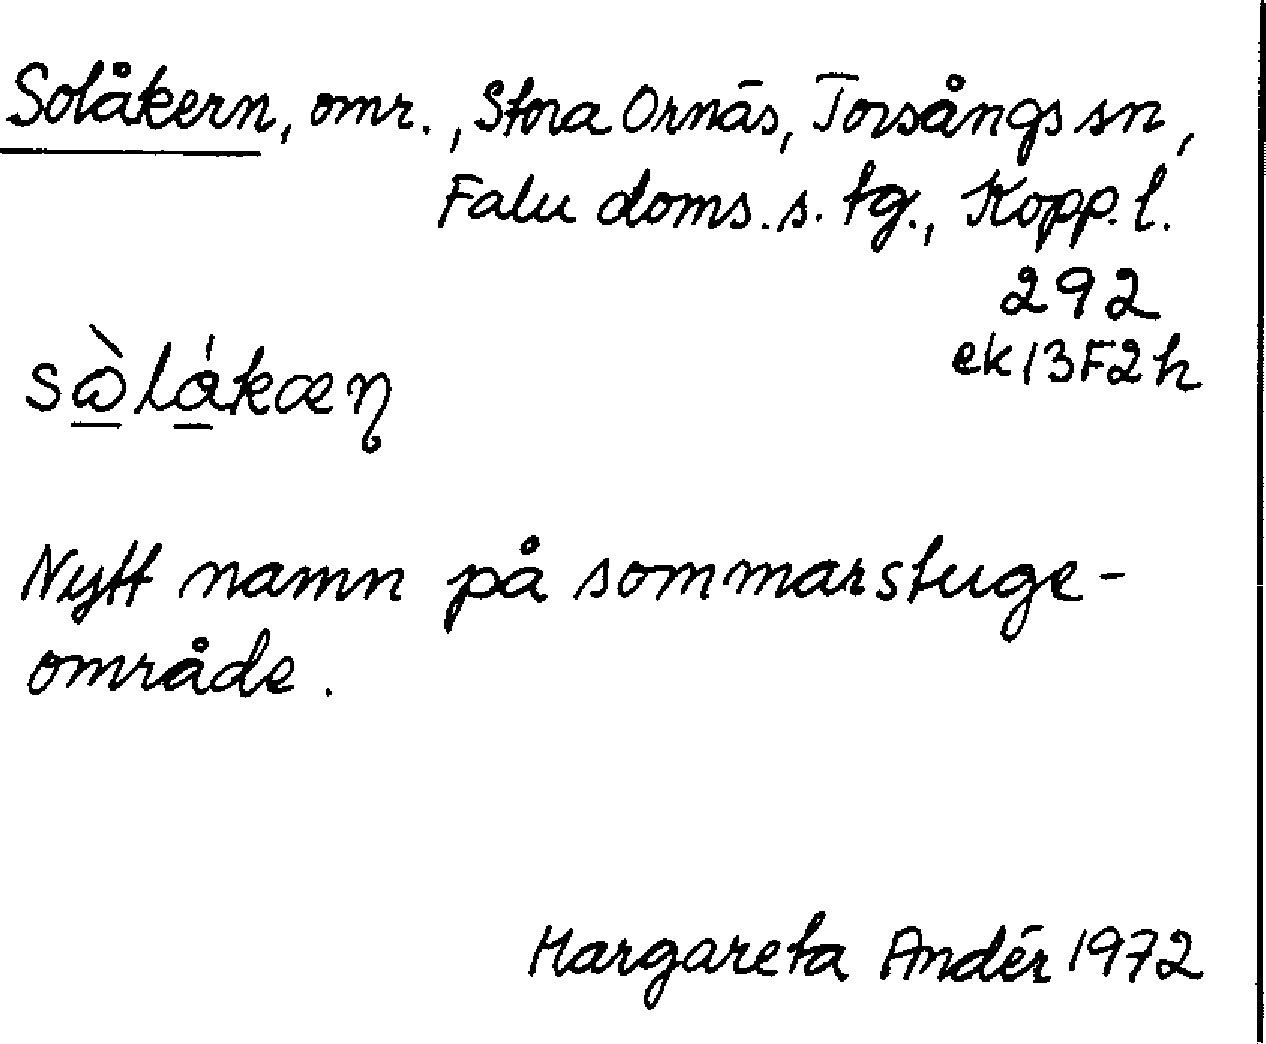 Solåkern, omr., Stora Ornäs, Torsångs sn,
Falu doms. s. tg., Kopp. l.
292
ek 13F2h
Nytt namn på sommarstuge-
område.
Margareta Andér 1972